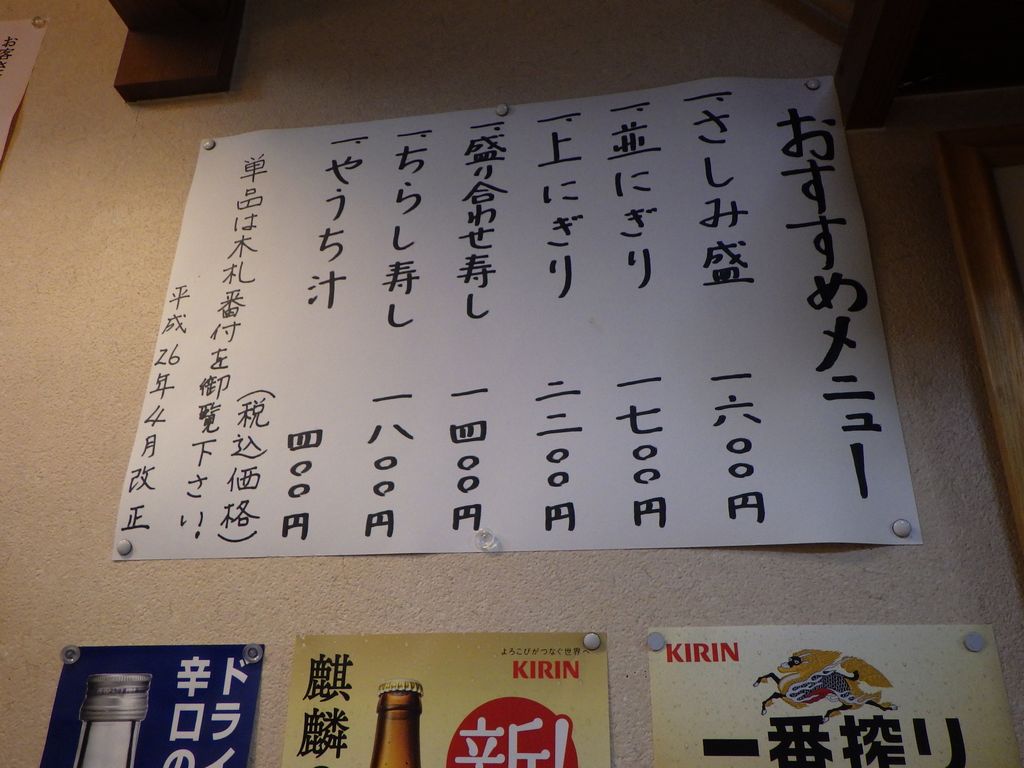 おすすめメニュー
一、さしみ盛 一六〇〇円
一、並にぎり 一七〇〇円
一、上にぎり 二二〇〇円
一、盛り合わせ寿し 一四〇〇円
一、ちらし寿し 一八〇〇円
一、やうち汁 四〇〇円
(税込価格)
単品は木札番付を御覧下さい!
平成26年4月改正
お客さ
ドライ
辛口の
麒麟
よろこびがつなぐ世界へ
KIRIN
新!
KIRIN
一番搾り